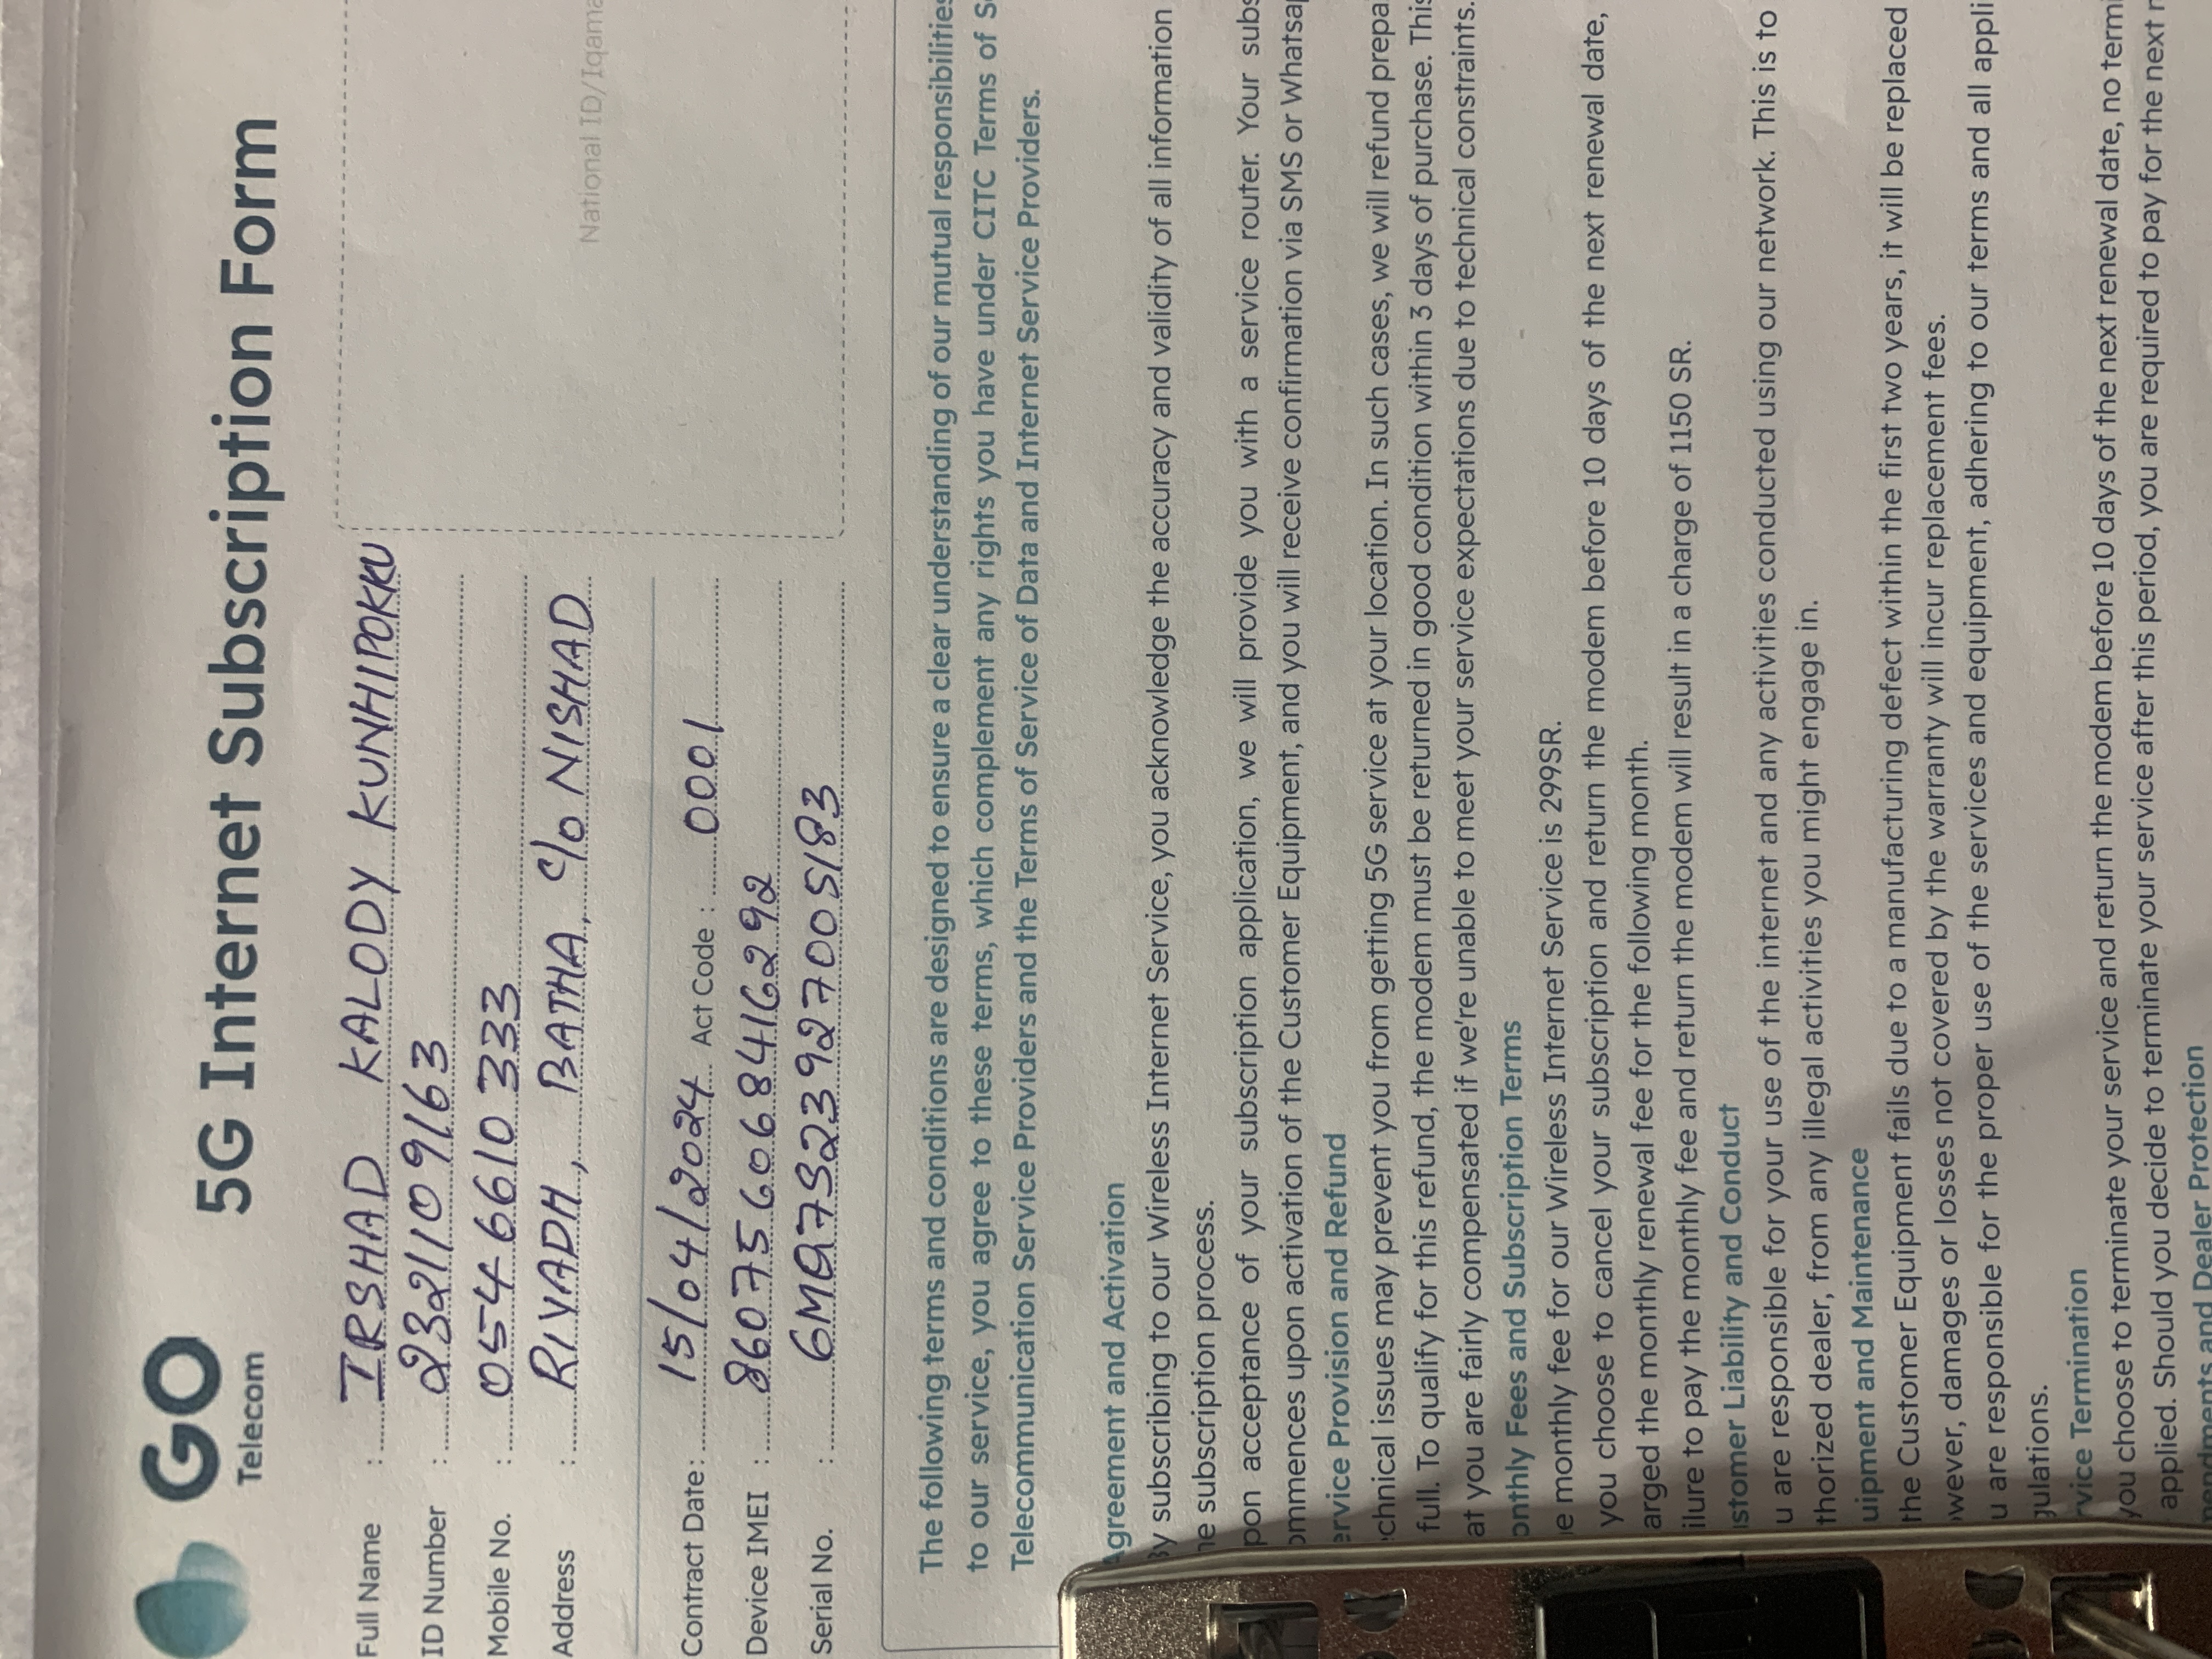 GO
Telecom
5G Internet Subscription Form
Full Name : IRSHAD KALODY KUNHIPOKKU
ID Number : 2321109163
Mobile No. : 0546610333
Address : RIYADH, BATHA, C/o NISHAD
National ID/Iqama
Contract Date: 15/04/2024 Act Code : 0001
Device IMEI : 860756068416292
Serial No. :
The following terms and conditions are designed to ensure a clear understanding of our mutual responsibilities
to our service, you agree to these terms, which complement any rights you have under CITC Terms of
Telecommunication Service Providers and the Terms of Service of Data and Internet Service Providers.
Agreement and Activation
By subscribing to our Wireless Internet Service, you acknowledge the accuracy and validity of all information
the subscription process.
pon acceptance of your subscription application, we will provide you with a service router. Your subs
ommences upon activation of the Customer Equipment, and you will receive confirmation via SMS or Whatsap
ervice Provision and Refund
echnical issues may prevent you from getting 5G service at your location. In such cases, we will refund prepa
full. To qualify for this refund, the modem must be returned in good condition within 3 days of purchase. This
at you are fairly compensated if we're unable to meet your service expectations due to technical constraints.
onthly Fees and Subscription Terms
e monthly fee for our Wireless Internet Service is 299SR.
you choose to cancel your subscription and return the modem before 10 days of the next renewal date,
arged the monthly renewal fee for the following month.
ilure to pay the monthly fee and return the modem will result in a charge of 1150 SR.
stomer Liability and Conduct
u are responsible for your use of the internet and any activities conducted using our network. This is to
thorized dealer, from any illegal activities you might engage in.
uipment and Maintenance
the Customer Equipment fails due to a manufacturing defect within the first two years, it will be replaced
wever, damages or losses not covered by the warranty will incur replacement fees.
u are responsible for the proper use of the services and equipment, adhering to our terms and all appli
gulations.
rvice Termination
you choose to terminate your service and return the modem before 10 days of the next renewal date, no termi
applied. Should you decide to terminate your service after this period, you are required to pay for the next
endments and Dealer Protection